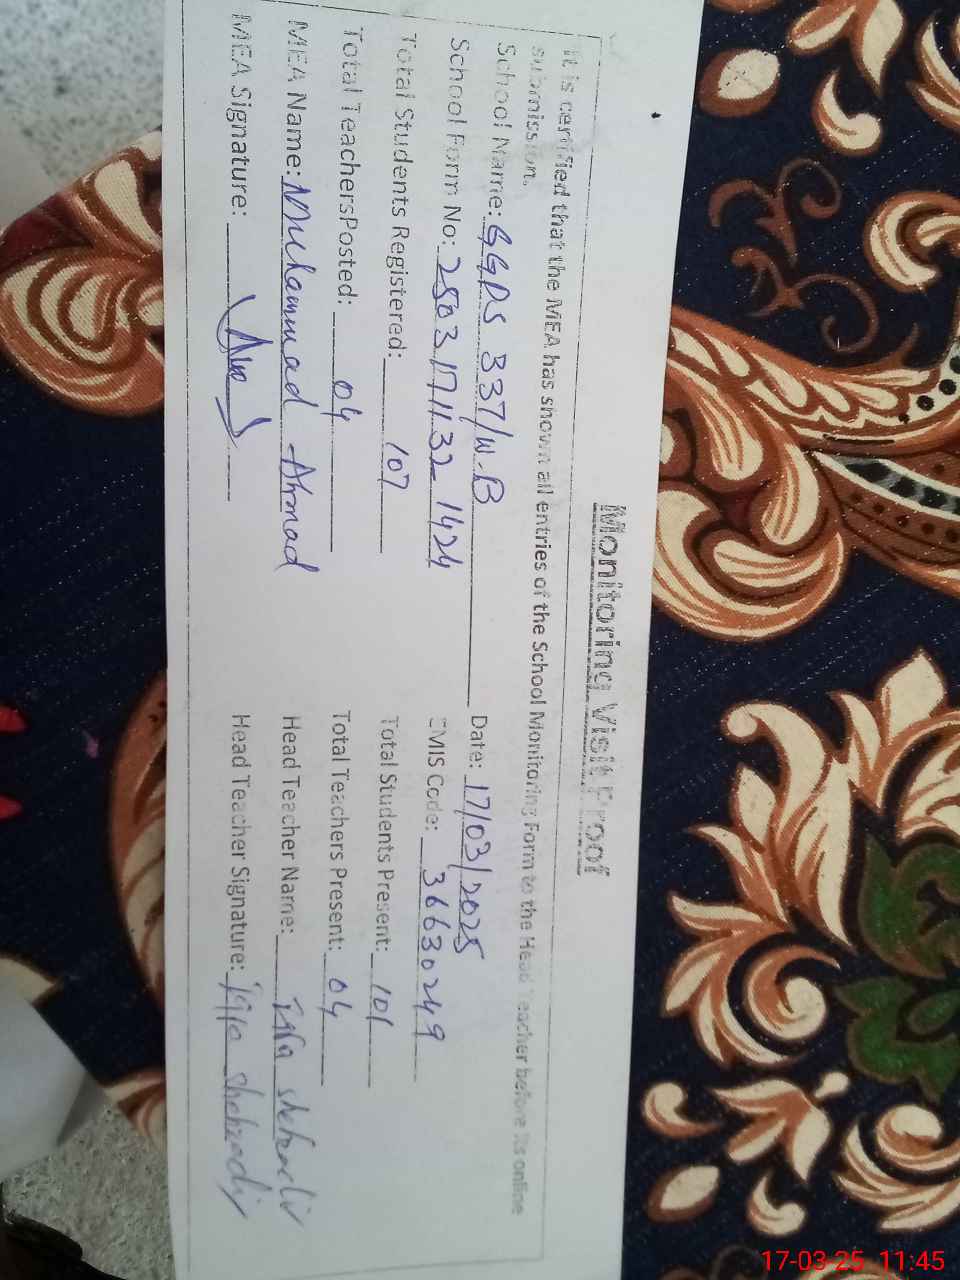 Monitoring Visit Proof
It is certified that the MEA has shown all entries of the School Monitoring Form to the Head Teacher before its online
submission.
School Name: GGPS 337/W.B Date: 17/03/2025
School Form No: 2503171132 1424 EMIS Code: 36630249
Total Students Registered: 107 Total Students Present: 101
Total TeachersPosted: 04 Total Teachers Present: 04
MEA Name: Muhammad Ahmad Head Teacher Name: shehzadi
MEA Signature: Head Teacher Signature: shehzadi
17-03-25 11:45